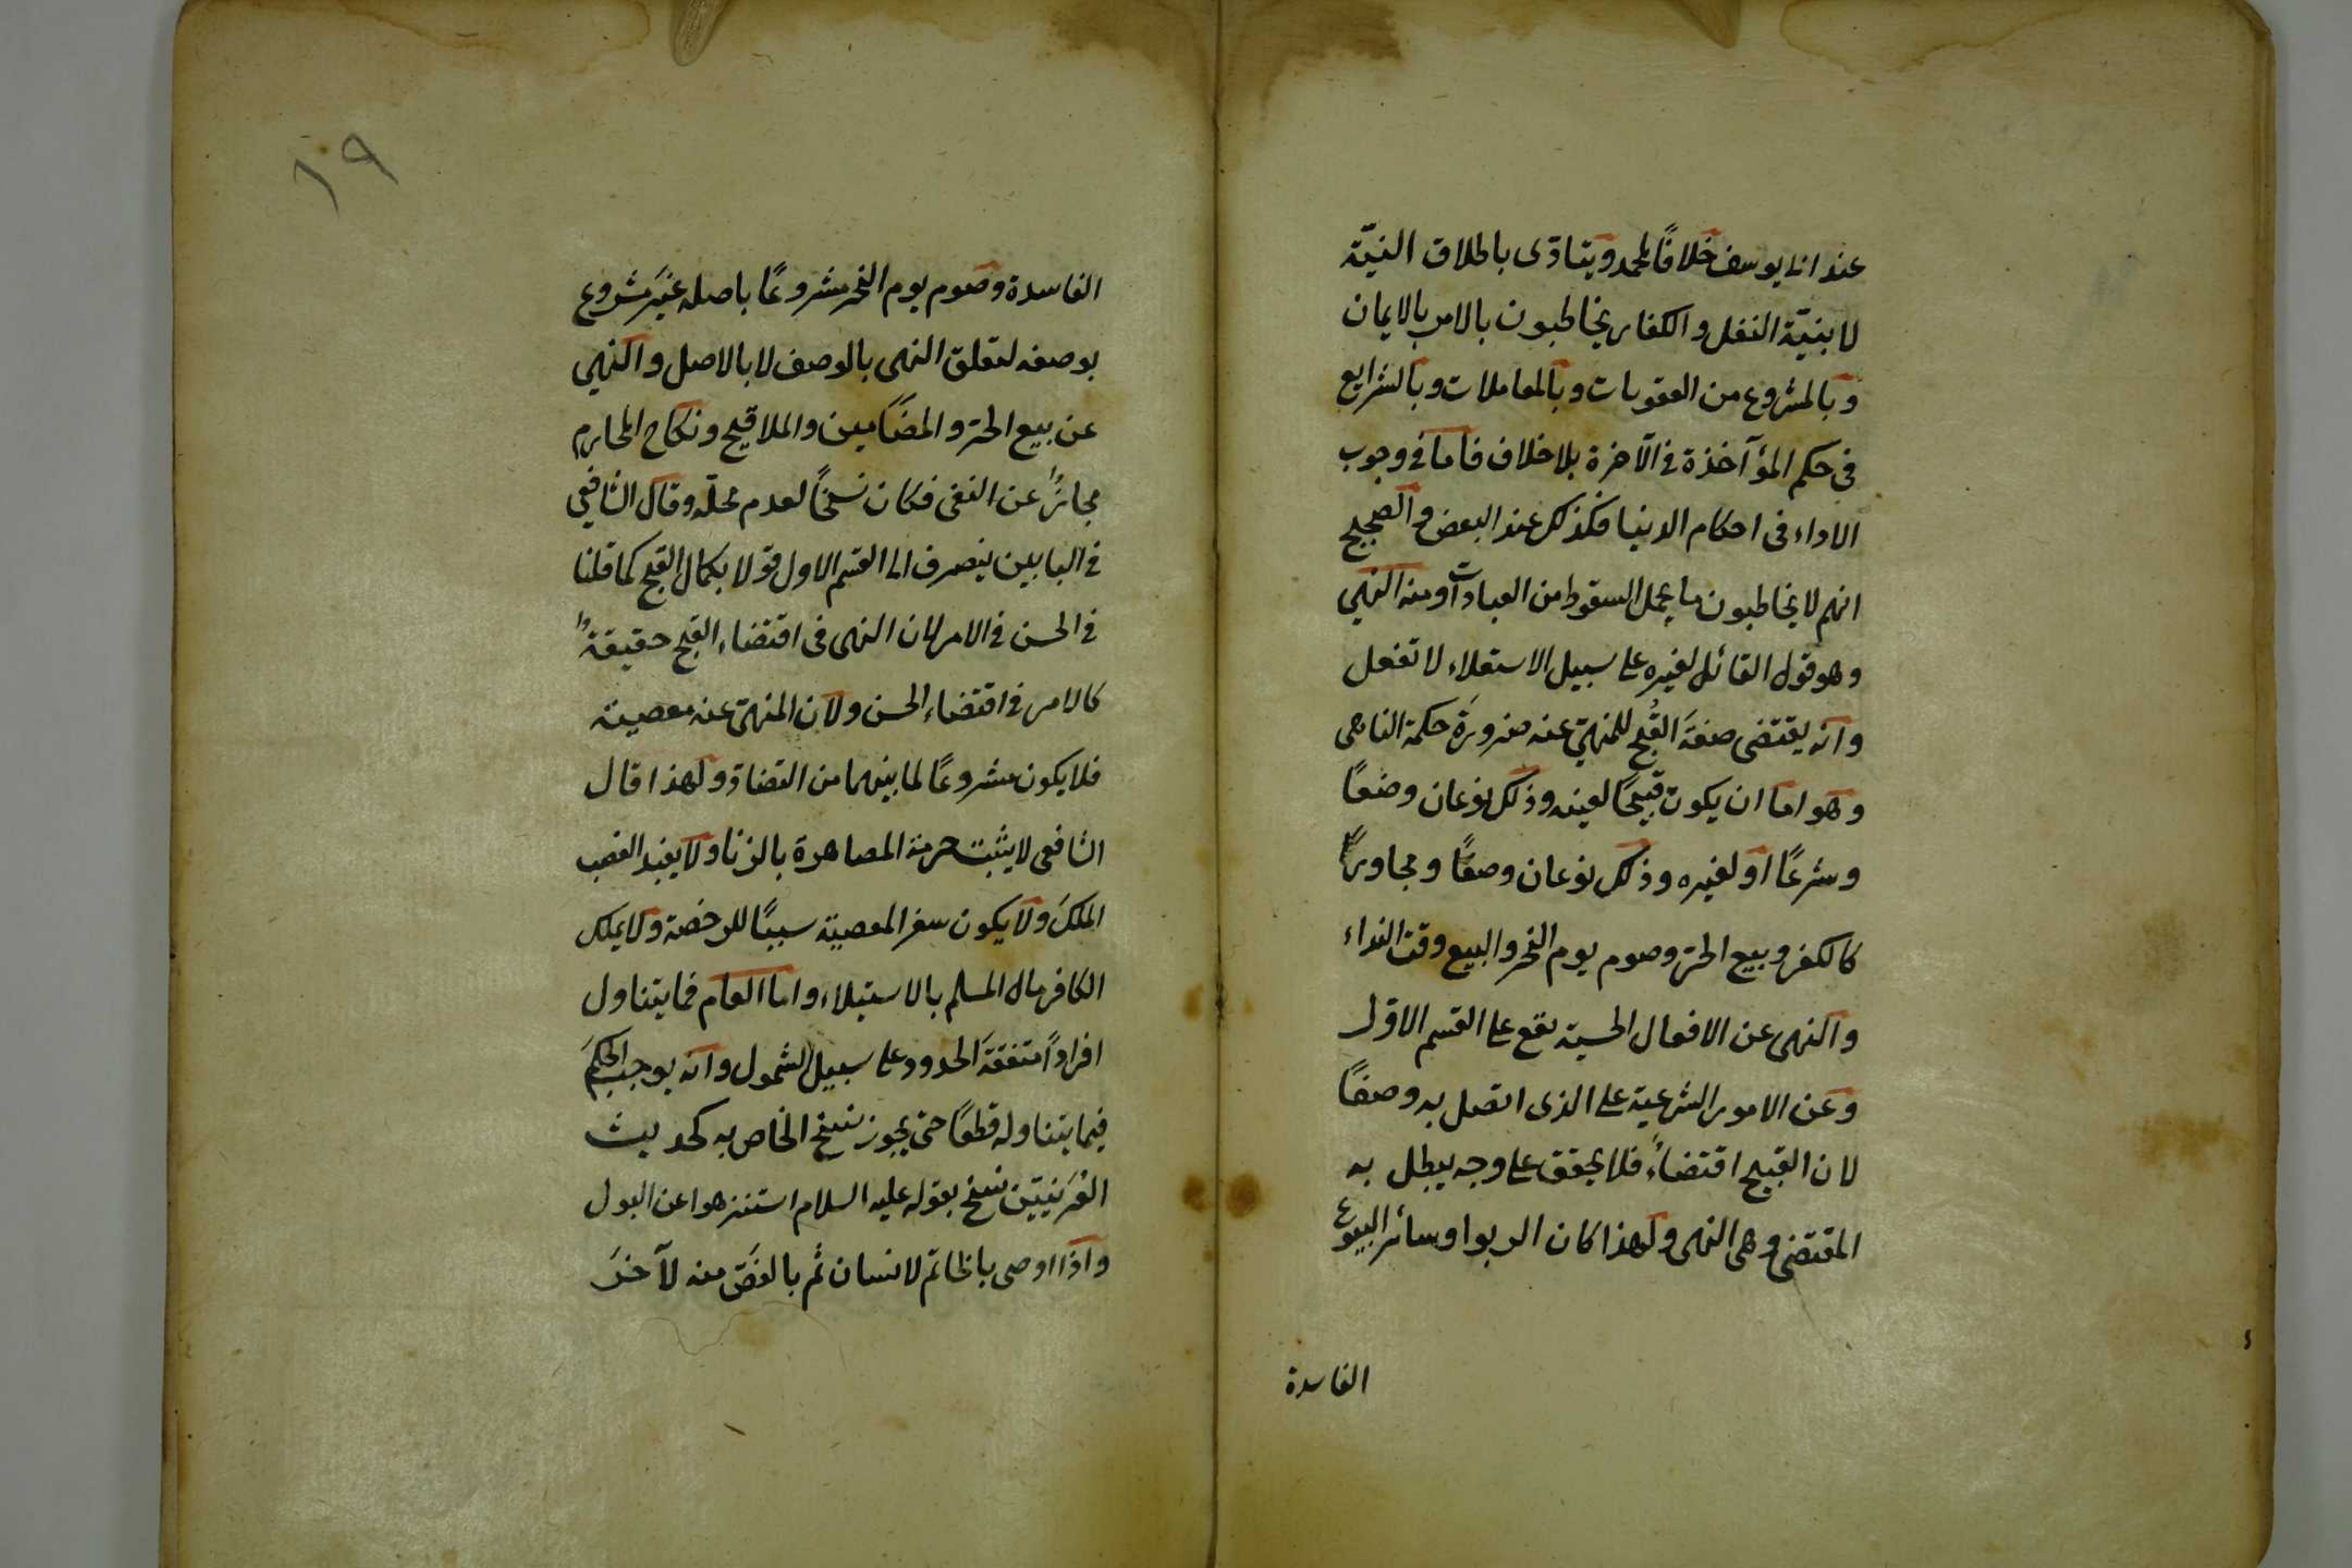 عند ابى يوسف خلافًا لمحمد ويتادّى باطلاق النيّة
لا بنيّة النفل والكفار يخاطبون بالامر بالايمان
وبالمشروع من العقوبات وبالمعاملات وبالشرايع
فى حكم المؤآخذة فى الآخرة بلا خلاف فاما فى وجوب
الاداء فى احكام الدنيا فكذلك عند البعض والصحيح
انهم لا يخاطبون ما يحمل السقوط من العبادات ومنه النهى
وهو قول القائل لغيره على سبيل الاستعلاء لا تفعل
وانه يقتضى صفةَ القُبح للمنهىّ عنه ضرورَة حكمة الناهى
وهو اما ان يكون قبيحًا لعينه وذلك نوعان وضعًا
وشرعًا او لغيره وذلك نوعان وصفًا ومجاورًا
كالكفر وبيع الحرّ وصوم يوم النحر والبيع وقت النداء
والنهى عن الافعال الحسية يقع على القسم الاوّل
وعن الامور الشرعية على الذى اتصل به وصفًا
لان القبيح اقتضاءً فلا يحقق على وجه يبطل به
المقتضى وهى النهى ولهذا كان الربوا وسائر البيوع
الفاسدة
١٩
الفاسدة وصوم يوم النحر مشروعًا باصله غيَر مشروع
بوصفه لتعلق النهى بالوصف لا بالاصل والنهى
عن بيع الحرّ والمضَامين والملاقيح ونكاح المحارم
مجازًا عن النفى فكان نسخًا لعدم محلّه وقال الشافعى
فى البابين ينصرف الى القسم الاول قولا بكمال القبح كما قلنا
فى الحسن فى الامر لان النهى فى اقتضاء القبح حقيقةً
كالامر فى اقتضاء الحسن ولان المنهىّ عنه معصية
فلا يكون مشروعًا لما بينهما من التضادّ ولهذا قال
الشافعى لا يثبت حرمة المصاهرة بالزنا ولا يفيد الغصب
الملكَ ولا يكون سفر المعصية سببًا للرخصة ولا يملك
الكافر مال المسلم بالاستيلاء واما العام فما يتناول
افرادًا متفقةَ الحدود على سبيل الشمول وانه يوجب الحكمَ
فيما يتناوله قطعًا حتى يجوز نسخ الخاص به كحديث
العُرَنيّين نسخ بقوله عليه السلام استنزهوا عن البول
واذا اوصى بالخاتم لانسان ثم بالفصّ منه لآخرَ